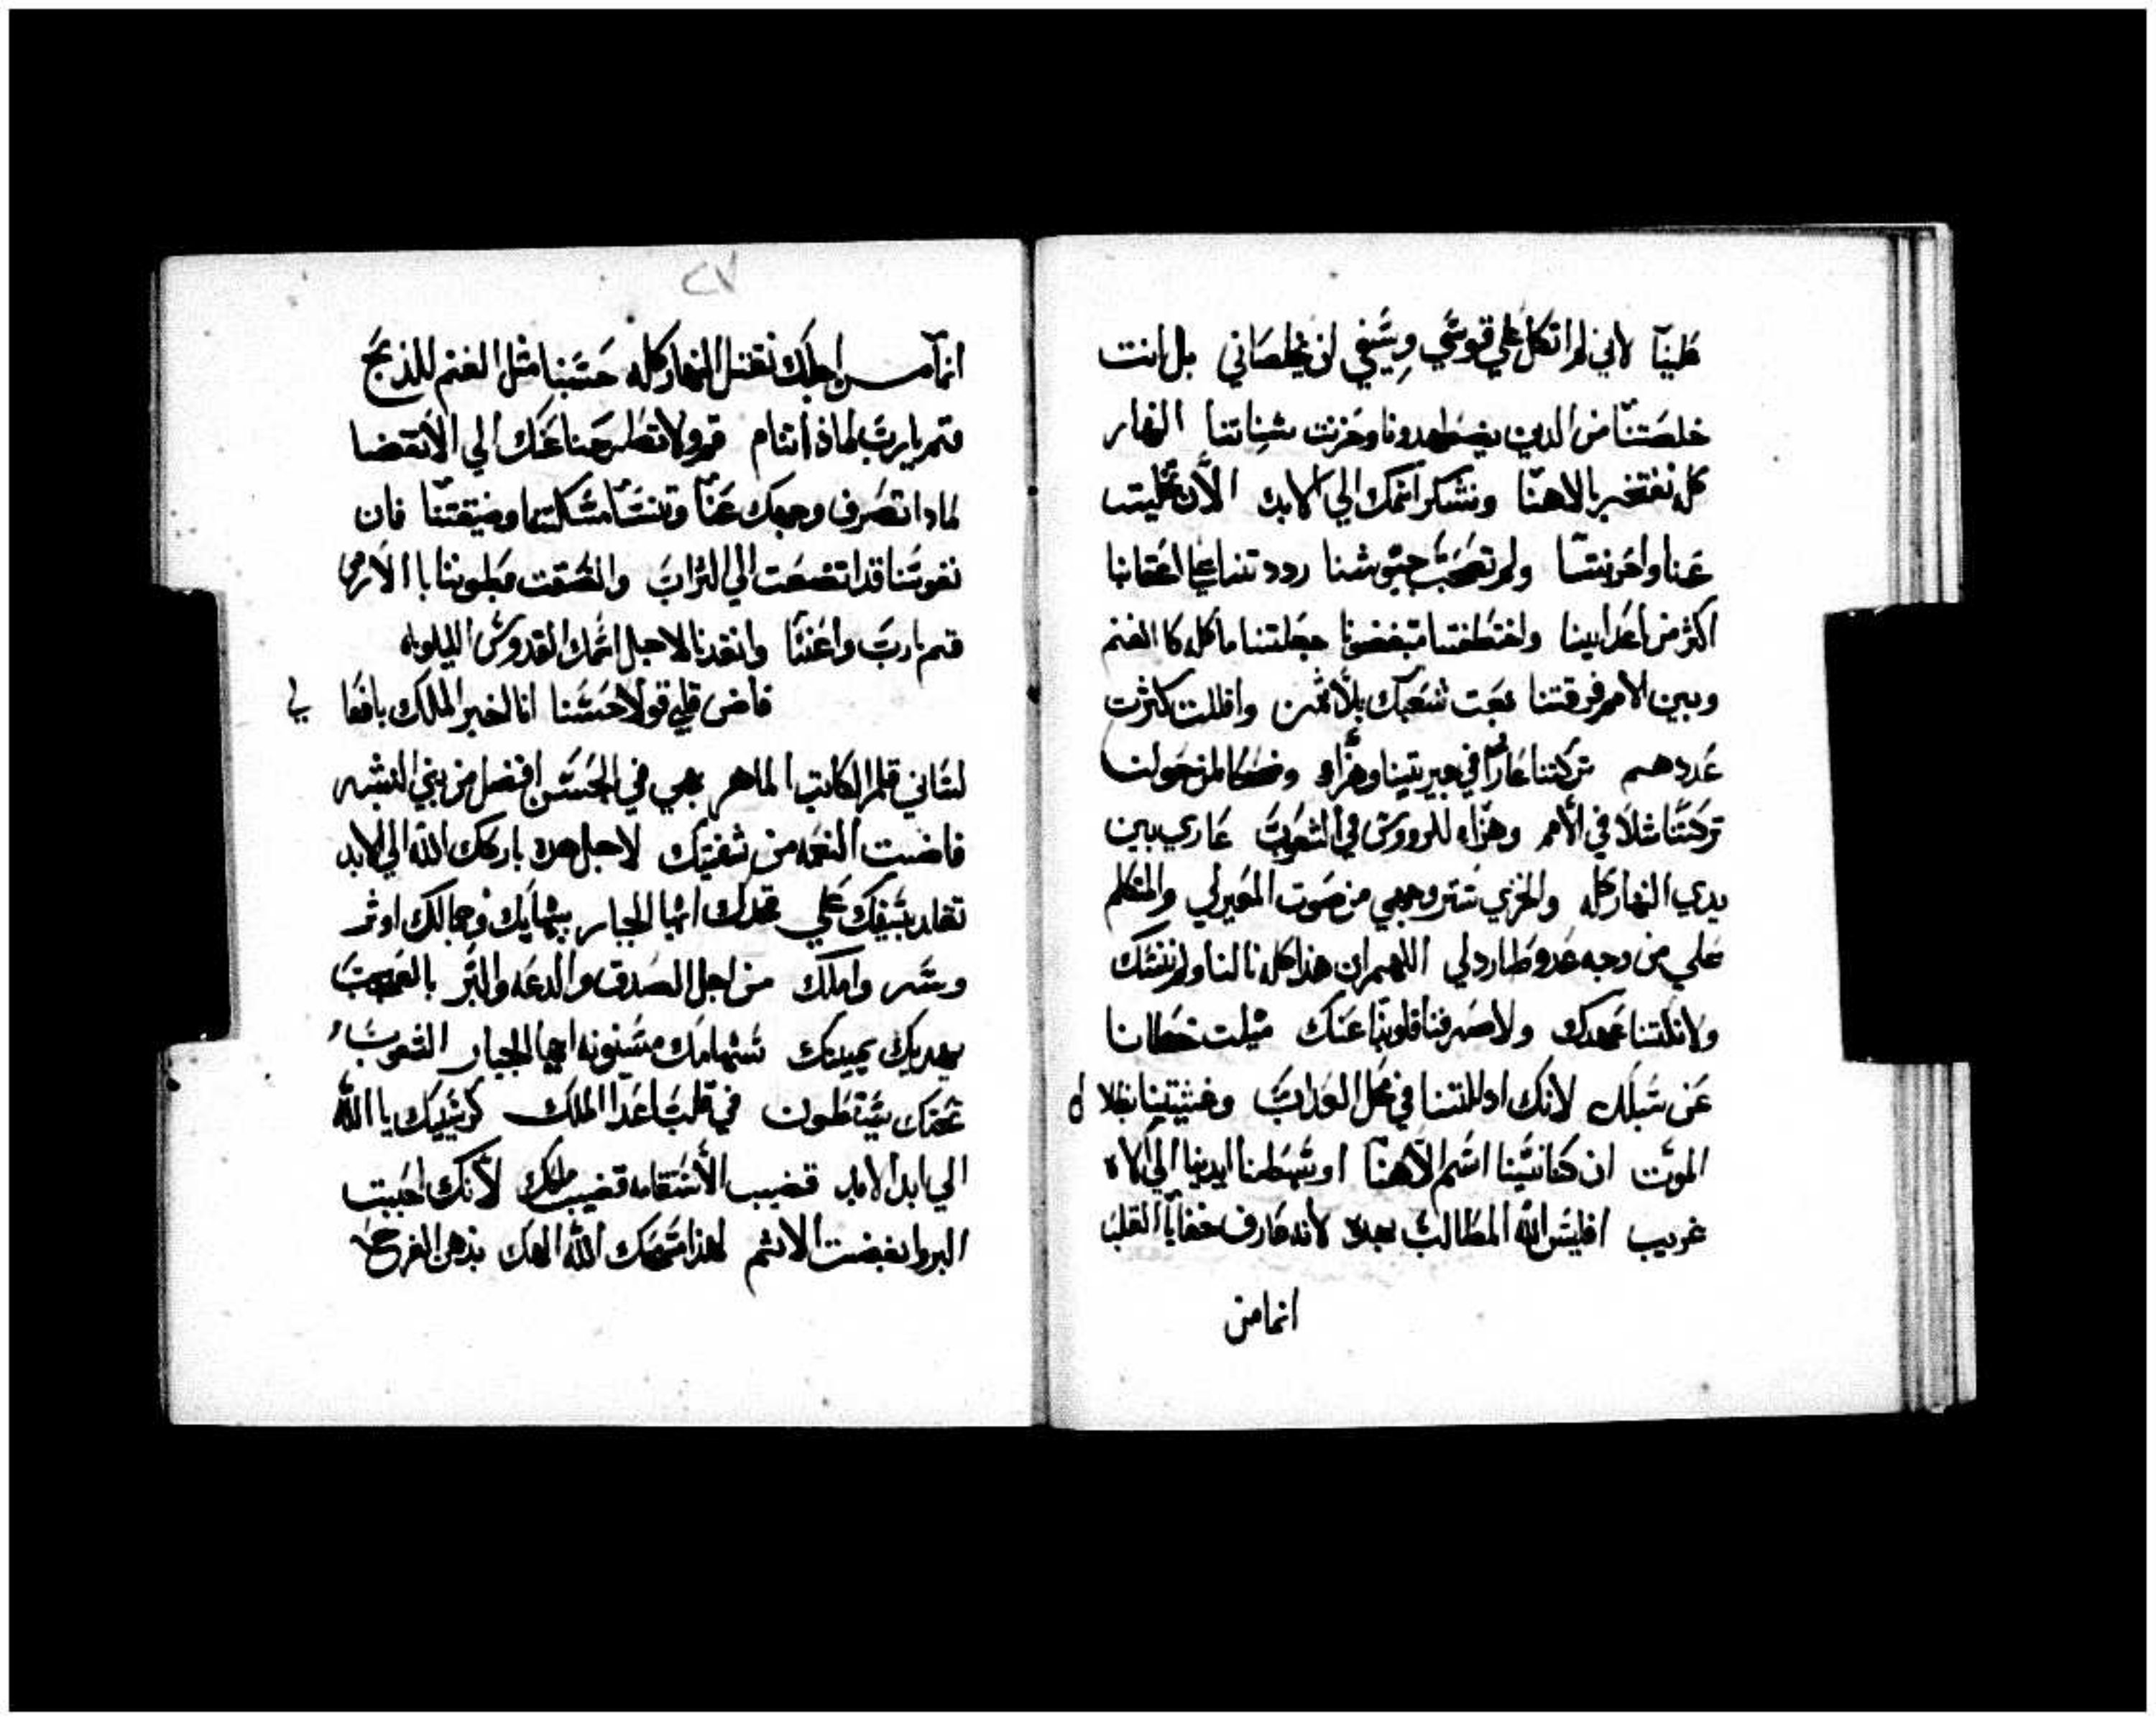 علينا لاني لم اتكل علي قوسي وسيفي لن يخلصاني بل انت
خلصتنا من الدين يضطهدونا وخزيت شناتنا النهار
كله نفتخر بالاهنا ونشكر اسمك الي الابد الان تخليت
عنا واخزيتنا ولم تصحب جيوشنا رددتنا علي اعقابنا
اكثر من اعداينا واختطفتنا مبغضونا جعلتنا ماكله كالغنم
وبين الامم فرقتنا بعت شعبك بلا ثمن واقللت كثرت
عددهم تركتنا عارا في جيرتنا وهزاه وضحكا لمن حولنا
تركتنا مثلا في الأمم وهزاه للرووس في الشعوب عاري بين
يدي النهار كله والخزي ستر وجهي من صوت المعير لي والمتكلم
علي من وجه عدو طارد لي اللهم ان هذا كله نالنا ولم ننسك
ولا نكثنا عهدك ولا صرفنا قلوبنا عنك ميلت خطانا
عن سبلك لانك ادللتنا في محل العداب وغشيتنا بظلال
الموت ان كنا نسينا اسم الاهنا او بسطنا ايدينا الي الاه
غريب افليس الله المطالب بهده لانه عارف خفايا القلب
انما من
٢٧
انما من اجلك نقتل النهار كله حسبنا مثل الغنم للذبح
قم يارب لماذا تنام قم ولا تطرحنا عنك الي الانقضا
لمادا تصرف وجهك عنا وتنسا مسكنتنا وضيقتنا فان
نفوسنا قد اتضعت الي التراب والصقت بطوننا با الارض
قم يارب واعننا وانقدنا لاجل اسمك القدوس الليلوياه
فاض قلبي قولا حسنا انا اخبر الملك بافعا لي
لساني قلم الكاتب الماهر بهي في الحسن افضل من بني البشر
فاضت النعمه من شفتيك لاجل هده باركك الله الي الابد
تقلد بسيفك علي فخدك ايها الجبار ببهايك وجمالك اوتر
وسر واملك من اجل الصدق والدعه والبر بالعجب
يهديك يمينك سهامك مسنونه ايها الجبار الشعوب
تحتك يسقطون في قلب اعدا الملك كرسيك يا الله
الي ابد الابد قضيب الأستقامه قضيب ملكك لأنك احببت
البر وابغضت الاثم لهذا مسحك الله الهك بدهن الفرح